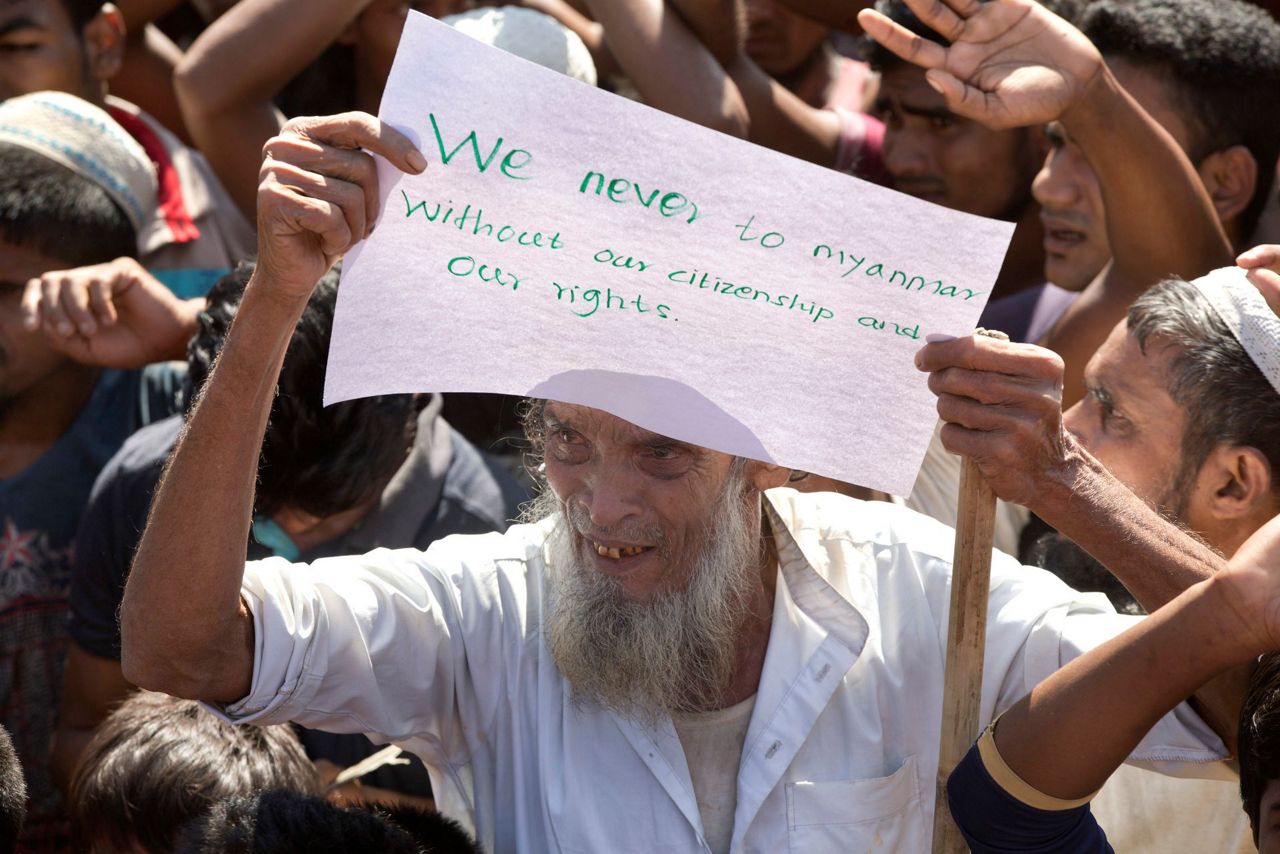 We never to myanmar
without our citizenship and
our rights.